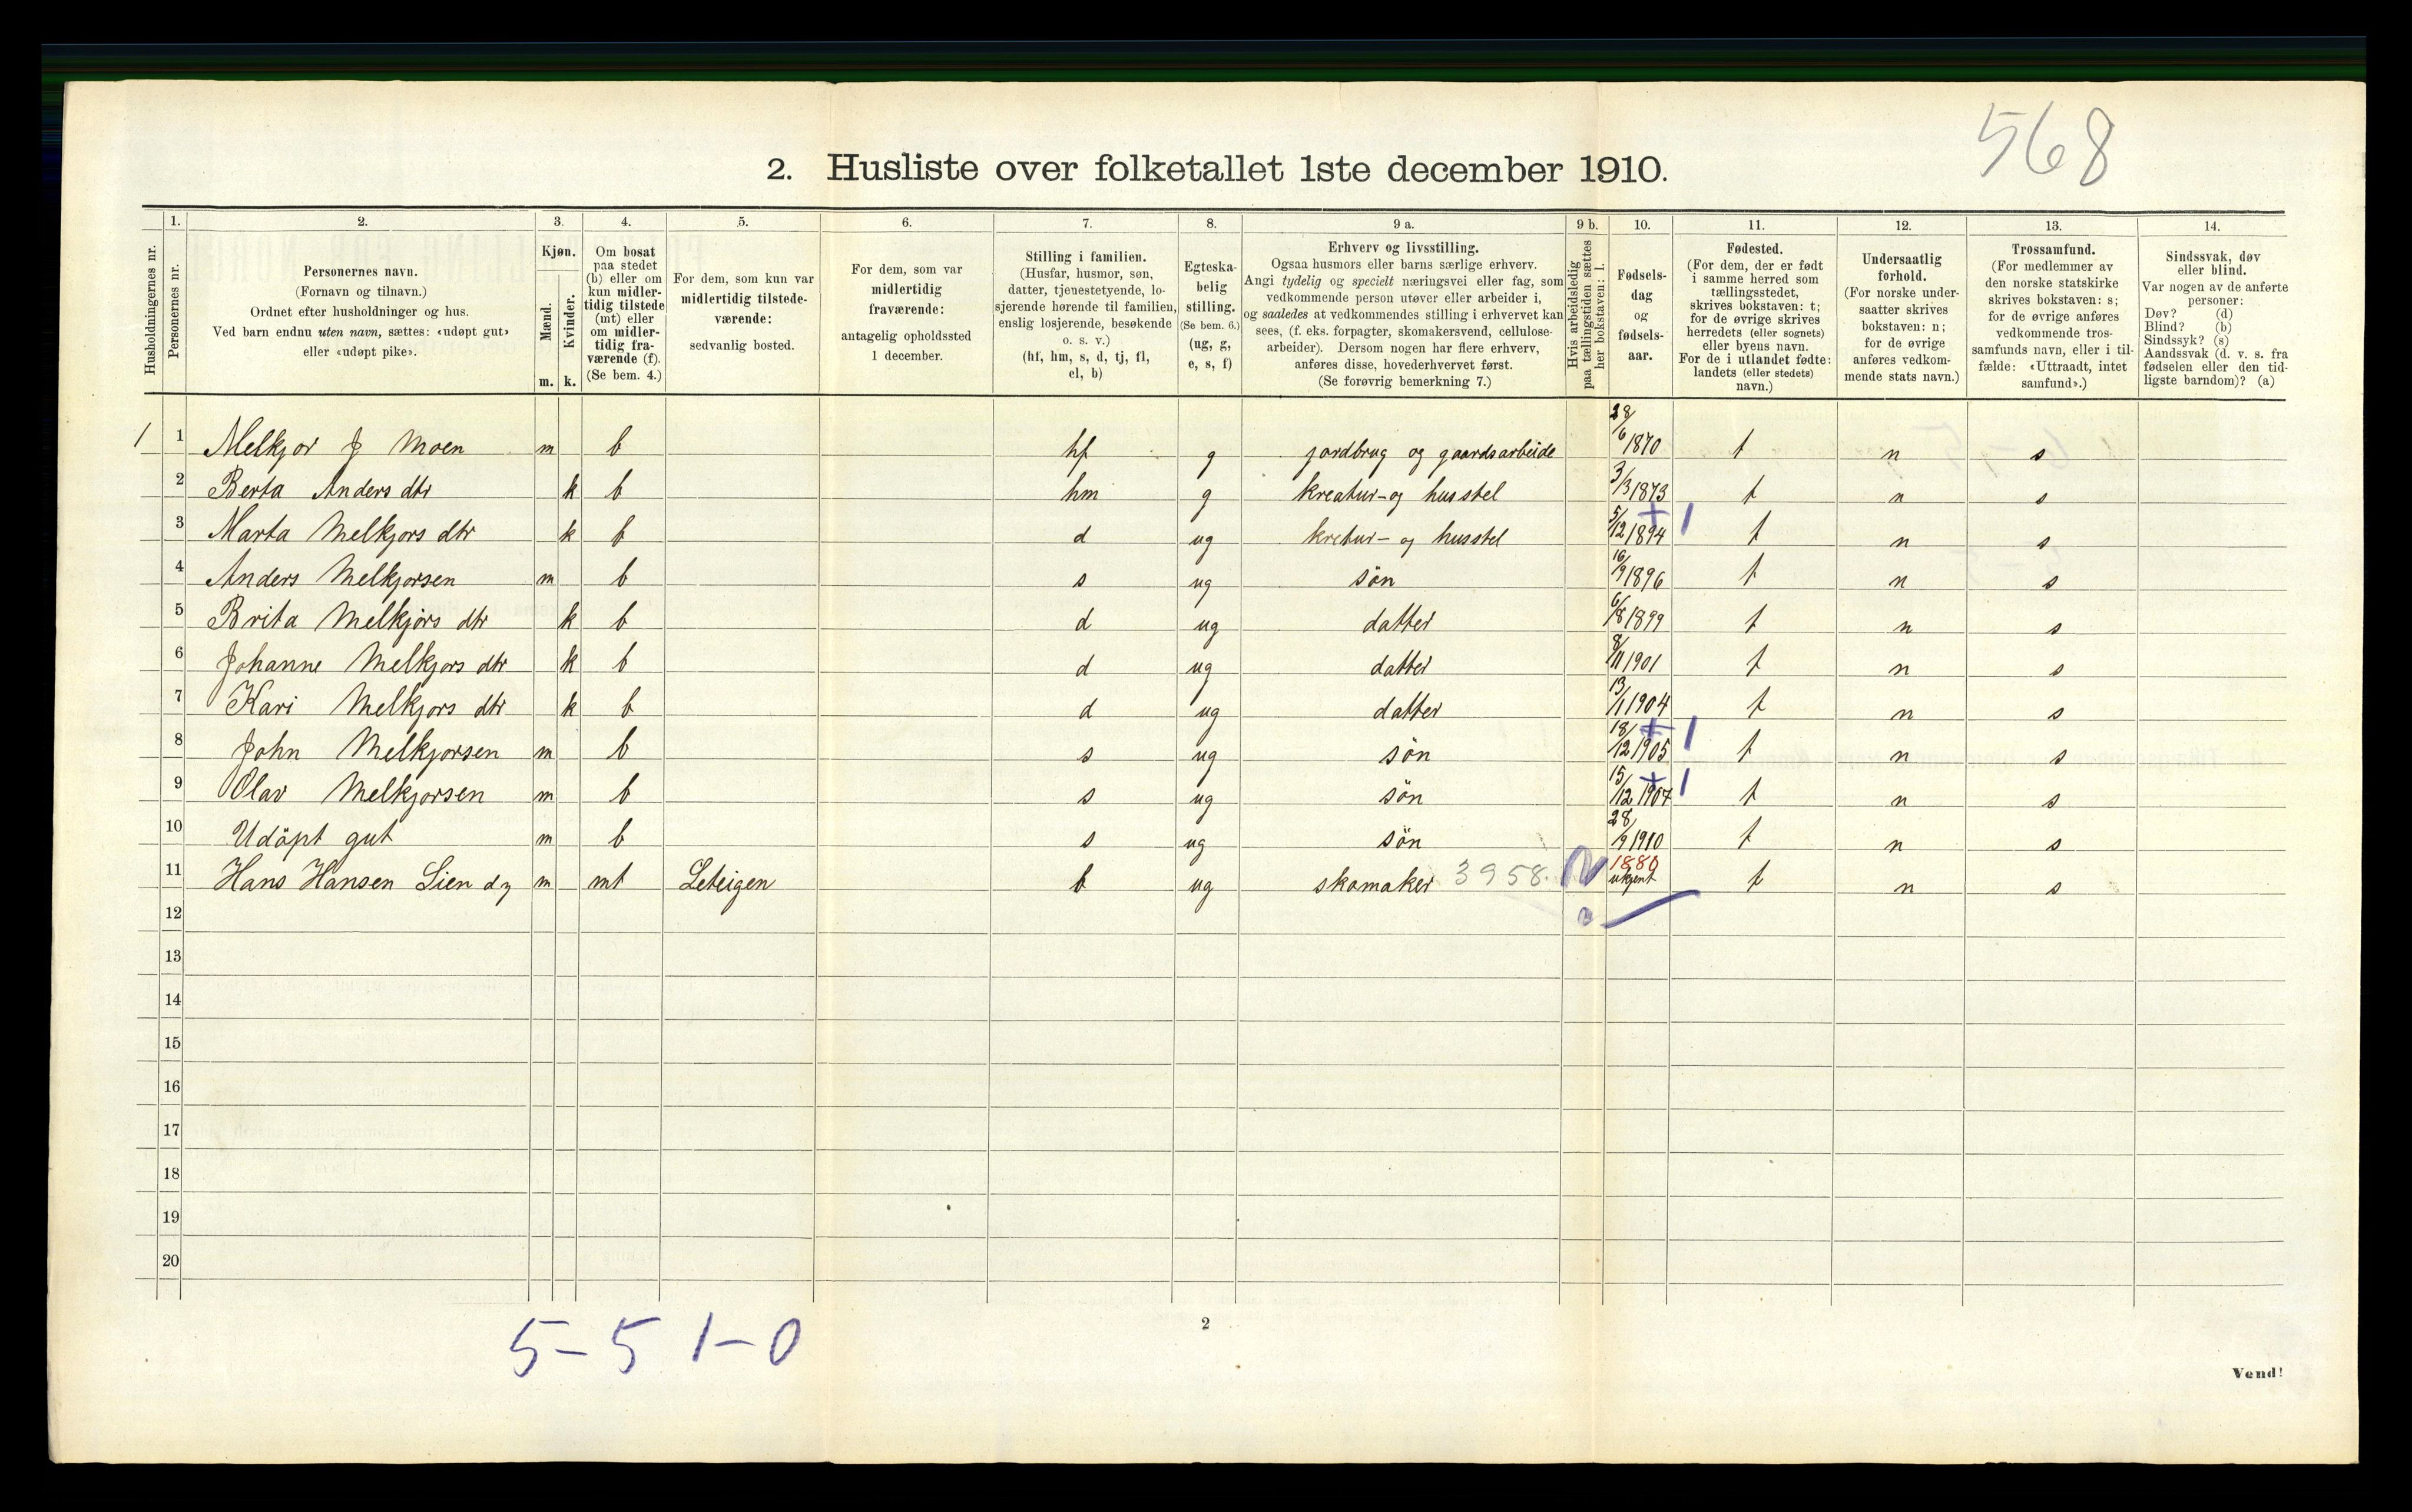 568
2. Husliste over folketallet 1ste december 1910.
Husholdningernes nr.
1. Personernes nr.
2. Personernes navn.
(Fornavn og tilnavn.)
Ordnet efter husholdninger og hus.
Ved barn endnu uten navn, sættes: «udøpt gut»
eller «udøpt pike».
3. Kjøn.
Mænd. m.
Kvinder. k.
4. Om bosat
paa stedet
(b) eller om
kun midler-
tidig tilstede
(mt) eller
om midler-
tidig fra-
værende (f).
(Se bem. 4.)
5. For dem, som kun var
midlertidig tilstede-
værende:
sedvanlig bosted.
6. For dem, som var
midlertidig
fraværende:
antagelig opholdssted
1 december.
7. Stilling i familien.
(Husfar, husmor, søn,
datter, tjenestetyende, lo-
sjerende hørende til familien,
enslig losjerende, besøkende
o. s. v.)
(hf, hm, s, d, tj, fl,
el, b)
8. Egteska-
belig
stilling.
(Se bem. 6.)
(ug, g,
e, s, f)
9 a. Erhverv og livsstilling.
Ogsaa husmors eller barns særlige erhverv.
Angi tydelig og specielt næringsvei eller fag, som
vedkommende person utøver eller arbeider i,
og saaledes at vedkommendes stilling i erhvervet kan
sees, (f. eks. forpagter, skomakersvend, cellulose-
arbeider). Dersom nogen har flere erhverv,
anføres disse, hovederhvervet først.
(Se forøvrig bemerkning 7.)
9 b. Hvis arbeidsledig
paa tællingstiden sættes
her bokstaven: l.
10. Fødsels-
dag
og
fødsels-
aar.
11. Fødested.
(For dem, der er født
i samme herred som
tællingsstedet,
skrives bokstaven: t;
for de øvrige skrives
herredets (eller sognets)
eller byens navn.
For de i utlandet fødte:
landets (eller stedets)
navn.)
12. Undersaatlig
forhold.
(For norske under-
saatter skrives
bokstaven: n;
for de øvrige
anføres vedkom-
mende stats navn.)
13. Trossamfund.
(For medlemmer av
den norske statskirke
skrives bokstaven: s;
for de øvrige anføres
vedkommende tros-
samfunds navn, eller i til-
fælde: «Uttraadt, intet
samfund».)
14. Sindssvak, døv
eller blind.
Var nogen av de anførte
personer:
Døv? (d)
Blind? (b)
Sindssyk? (s)
Aandssvak (d. v. s. fra
fødselen eller den tid-
ligste barndom)? (a)
1 1 Melkjor J Moen m b hf g jordbrug og gaardsarbeide 28/6 1870 t n s
2 Berta Anders dtr k b hm g kreatur- og husstel 3/3 1873 t n s
3 Marta Melkjors dtr k b d ug kretur- og husstel 5/12 1894 + 1 t n s
4 Anders Melkjorsen m b s ug sön 16/9 1896 t n s
5 Brita Melkjors dtr k b d ug datter 6/8 1899 t n s
6 Johanne Melkjors dtr k b d ug datter 8/11 1901 t n s
7 Kari Melkjors dtr k b d ug datter 13/1 1904 t n s
8 John Melkjorsen m b s ug sön 18/12 1905 + 1 t n s
9 Olav Melkjorsen m b s ug sön 15/12 1907 + 1 t n s
10 Udöpt gut m b s ug sön 28/9 1910 t n s
11 Hans Hansen Lien m mt Leteigen b ug skomaker 3958. 1880 ukjent t n s
12
13
14
15
16
17
18
19
20
5-5 1-0
2
Vend!